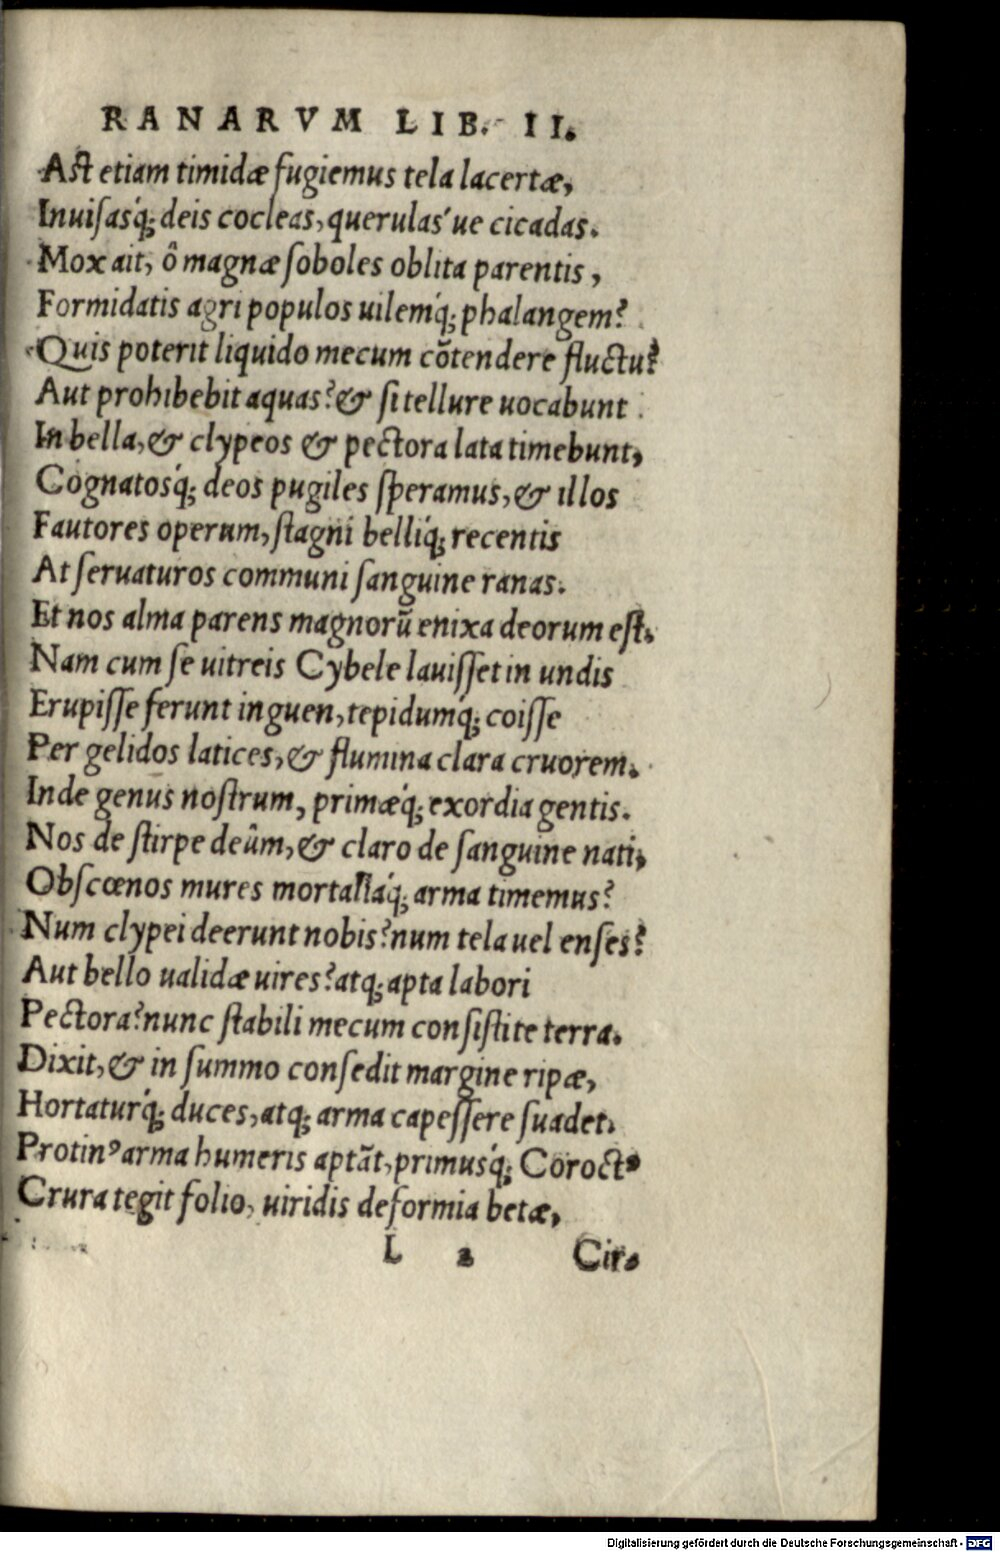 RANARVM LIB. II.
Ast etiam timidæ fugiemus tela lacertæ,
Inuisasq́; deis cocleas, querulas´ue cicadas.
Mox ait, ô magnæ soboles oblita parentis,
Formidatis agri populos uilemq́; phalangem?
Quis poterit liquido mecum cõtendere fluctu?
Aut prohibebit aquas? & si tellure uocabunt
In bella, & clypeos & pectora lata timebunt,
Cognatosq́; deos pugiles speramus, & illos
Fautores operum, stagni belliq́; recentis
At seruaturos communi sanguine ranas.
Et nos alma parens magnorũ enixa deorum est,
Nam cum se uitreis Cybele lauisset in undis
Erupisse ferunt inguen, tepidumq́; coisse
Per gelidos latices, & flumina clara cruorem.
Inde genus nostrum, primæq́; exordia gentis.
Nos de stirpe deûm, & claro de sanguine nati,
Obscœnos mures mortaliaq́; arma timemus?
Num clypei deerunt nobis? num tela uel enses?
Aut bello ualidæ uires? atq; apta labori
Pectora? nunc stabili mecum consistite terra.
Dixit, & in summo consedit margine ripæ,
Hortaturq́; duces, atq; arma capessere suadet.
Protinꝰ arma humeris aptãt, primusq́; Coroctꝰ
Crura tegit folio, uiridis deformia betæ,
L 2 Cir.
Digitalisierung gefördert durch die Deutsche Forschungsgemeinschaft - DFG